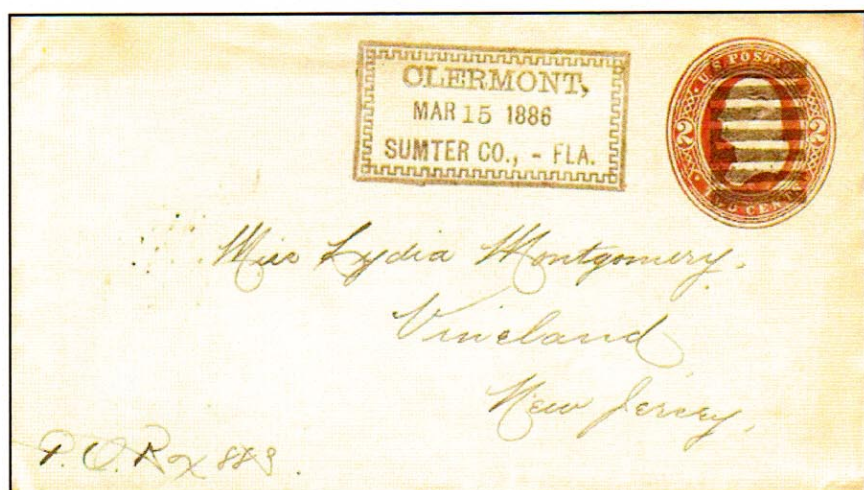 CLERMONT,
MAR 15 1886
SUMTER CO., - FLA.
U.S. POSTAGE
2 2
TWO CENTS
Miss Lydia Montgomery.
Vineland
New Jersey.
P. O. Box 883.